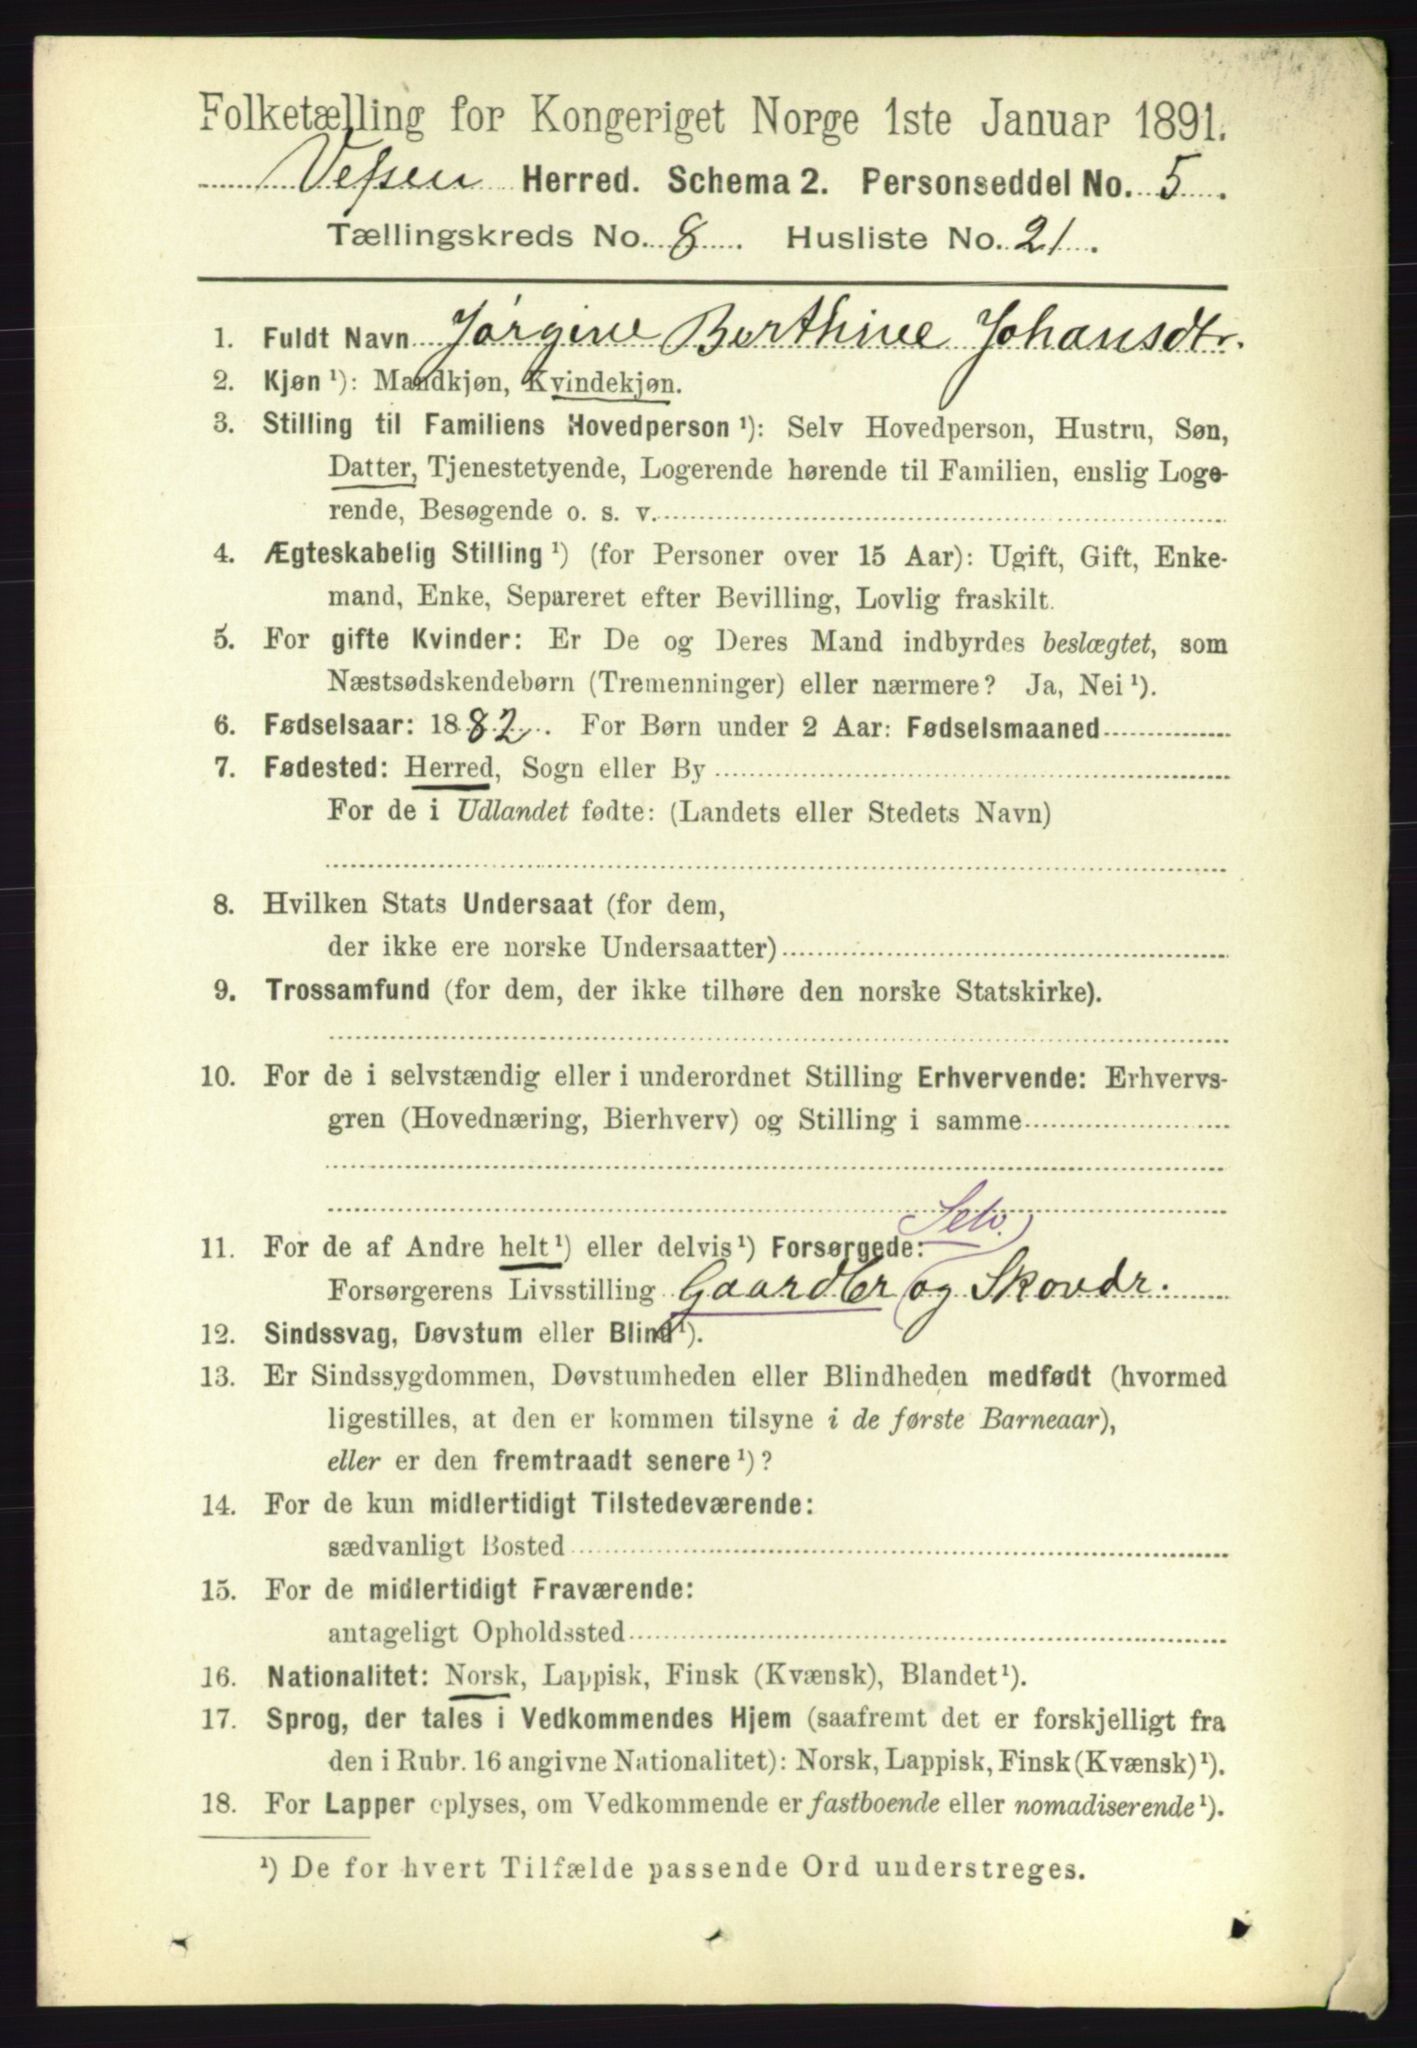 Folketælling for Kongeriget Norge 1ste Januar 1891.
Vefsen Herred. Schema 2. Personseddel No. 5.
Tællingskreds No. 8. Husliste No. 21.
1. Fuldt Navn Jørgine Berthine Johansdtr.
2. Kjøn ¹): Mandkjøn, Kvindekjøn.
3. Stilling til Familiens Hovedperson ¹): Selv Hovedperson, Hustru, Søn,
Datter, Tjenestetyende, Logerende hørende til Familien, enslig Loge-
rende, Besøgende o. s. v.
4. Ægteskabelig Stilling ¹) (for Personer over 15 Aar): Ugift, Gift, Enke-
mand, Enke, Separeret efter Bevilling, Lovlig fraskilt.
5. For gifte Kvinder: Er De og Deres Mand indbyrdes beslægtet, som
Næstsødskendebørn (Tremenninger) eller nærmere? Ja, Nei ¹).
6. Fødselsaar: 1882. For Børn under 2 Aar: Fødselsmaaned
7. Fødested: Herred, Sogn eller By
For de i Udlandet fødte: (Landets eller Stedets Navn)
8. Hvilken Stats Undersaat (for dem,
der ikke ere norske Undersaatter)
9. Trossamfund (for dem, der ikke tilhøre den norske Statskirke).
10. For de i selvstændig eller i underordnet Stilling Erhvervende: Erhvervs-
gren (Hovednæring, Bierhverv) og Stilling i samme
Selv.
11. For de af Andre helt ¹) eller delvis ¹) Forsørgede:
Forsørgerens Livsstilling Gaardbr og Skovdr.
12. Sindssvag, Døvstum eller Blind ¹).
13. Er Sindssygdommen, Døvstumheden eller Blindheden medfødt (hvormed
ligestilles, at den er kommen tilsyne i de første Barneaar),
eller er den fremtraadt senere ¹)?
14. For de kun midlertidigt Tilstedeværende:
sædvanligt Bosted
15. For de midlertidigt Fraværende:
antageligt Opholdssted
16. Nationalitet: Norsk, Lappisk, Finsk (Kvænsk), Blandet ¹).
17. Sprog, der tales i Vedkommendes Hjem (saafremt det er forskjelligt fra
den i Rubr. 16 angivne Nationalitet): Norsk, Lappisk, Finsk (Kvænsk) ¹).
18. For Lapper oplyses, om Vedkommende er fastboende eller nomadiserende ¹).
¹) De for hvert Tilfælde passende Ord understreges.